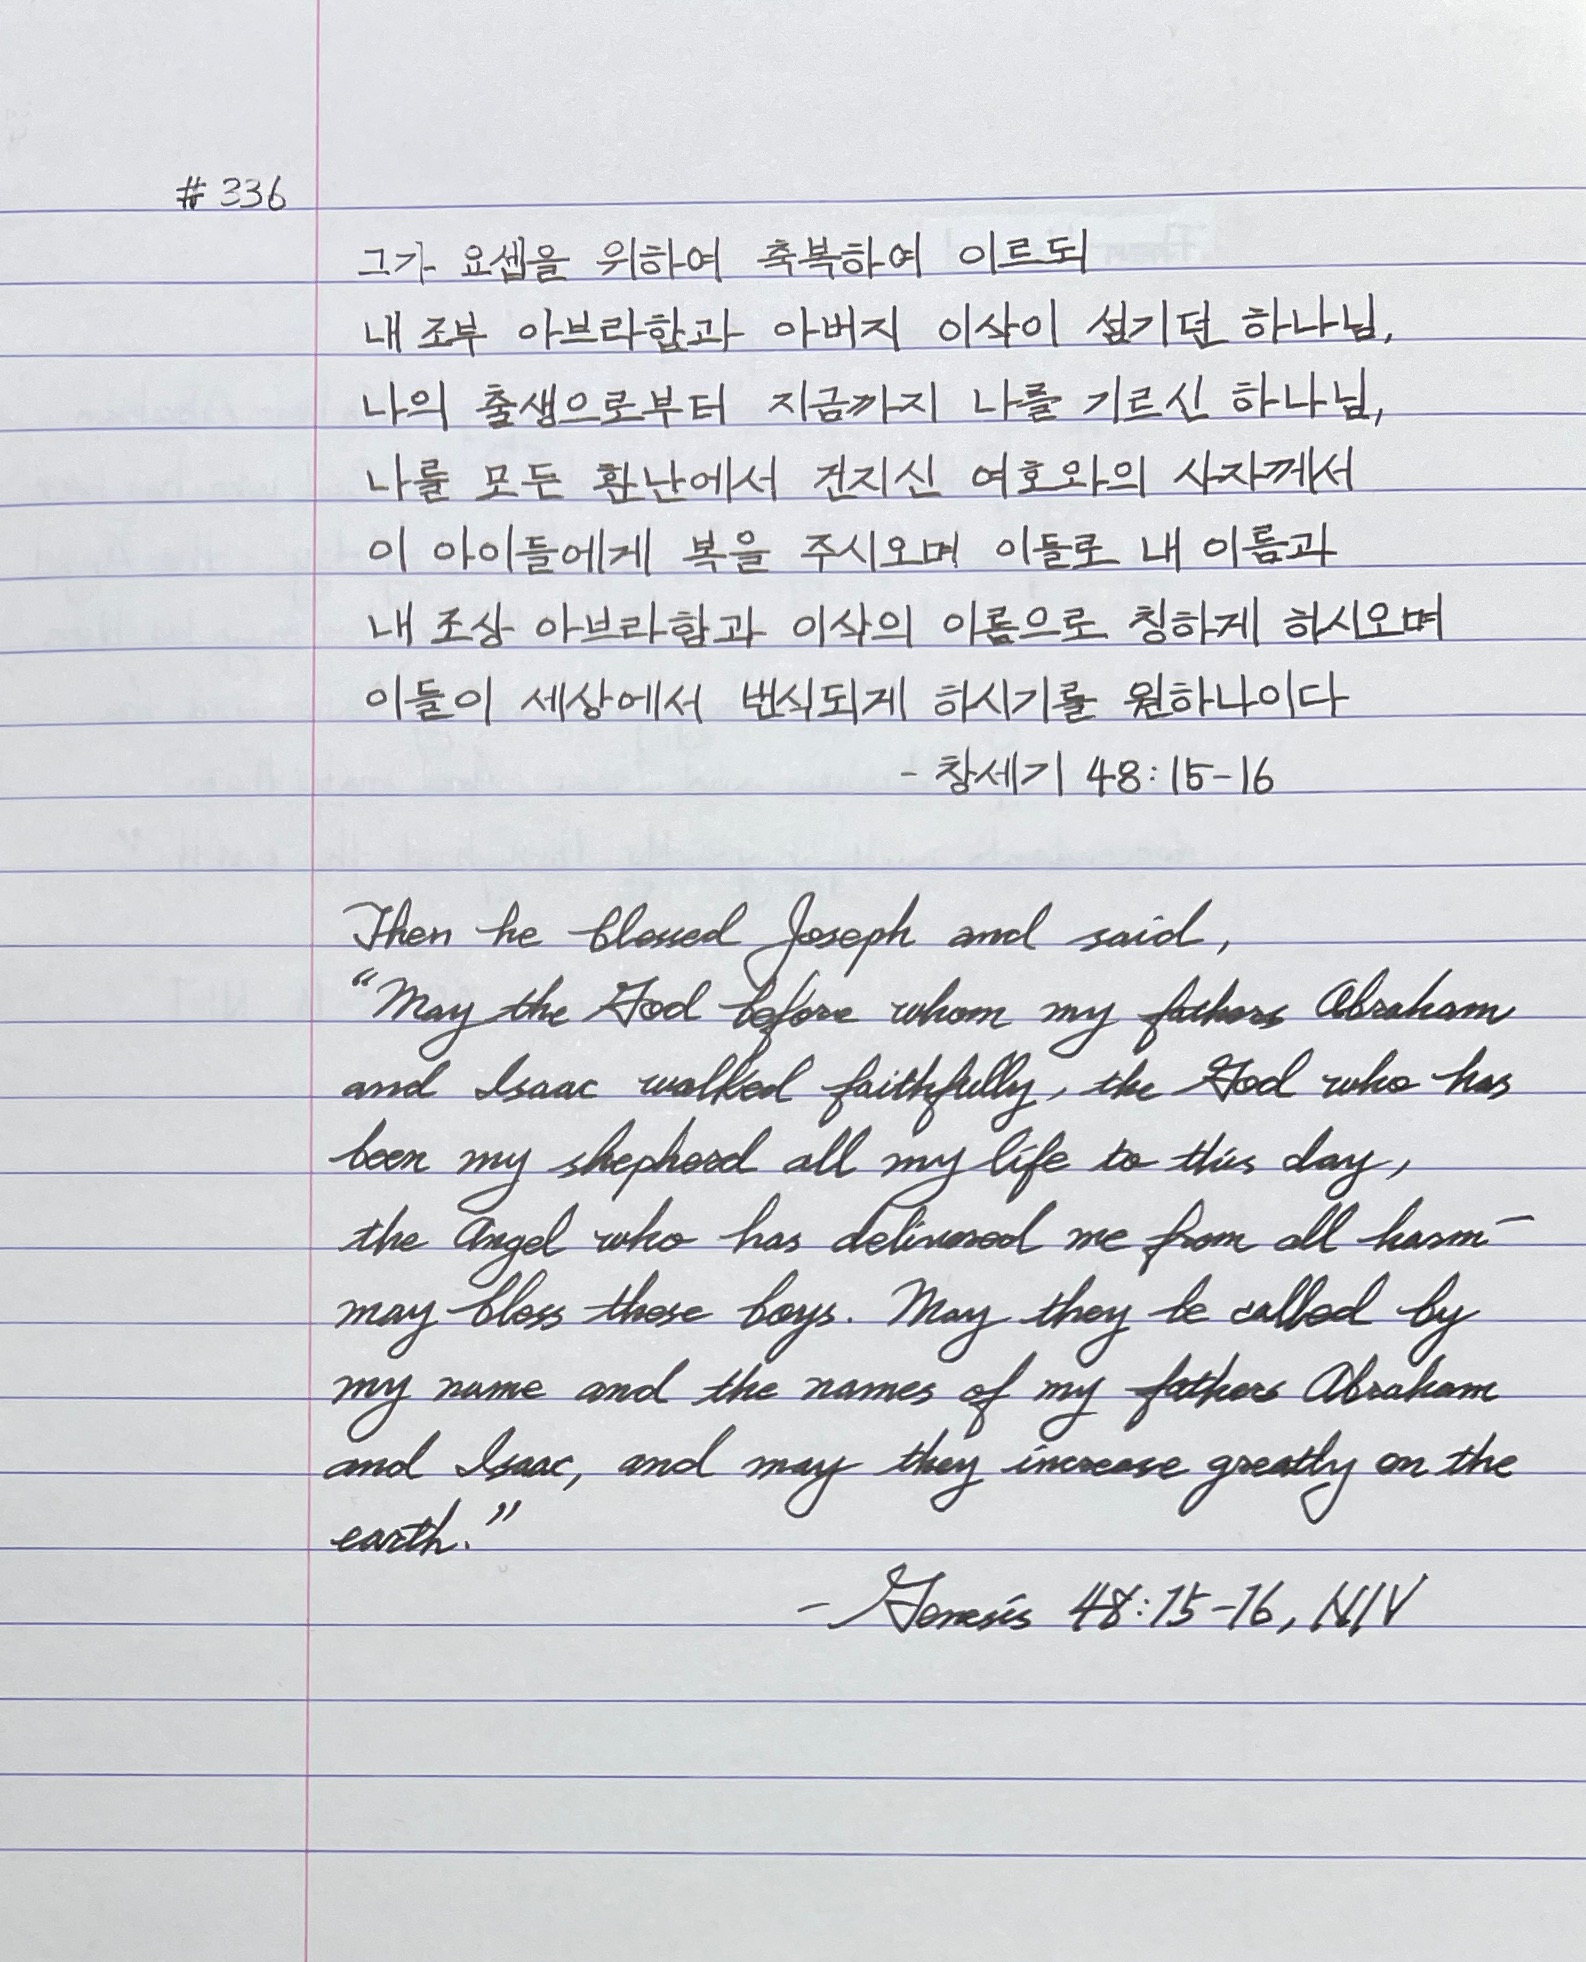 #336
그가 요셉을 위하여 축복하여 이르되
내 조부 아브라함과 아버지 이삭이 섬기던 하나님,
나의 출생으로부터 지금까지 나를 기르신 하나님,
나를 모든 환난에서 건지신 여호와의 사자께서
이 아이들에게 복을 주시오며 이들로 내 이름과
내 조상 아브라함과 이삭의 이름으로 칭하게 하시오며
이들이 세상에서 번식되게 하시기를 원하나이다
- 창세기 48:15-16
Then he blessed Joseph and said,
“May the God before whom my fathers Abraham
and Isaac walked faithfully, the God who has
been my shepherd all my life to this day,
the Angel who has delivered me from all harm—
may bless these boys. May they be called by
my name and the names of my fathers Abraham
and Isaac, and may they increase greatly on the
earth.”
- Genesis 48:15-16, NIV